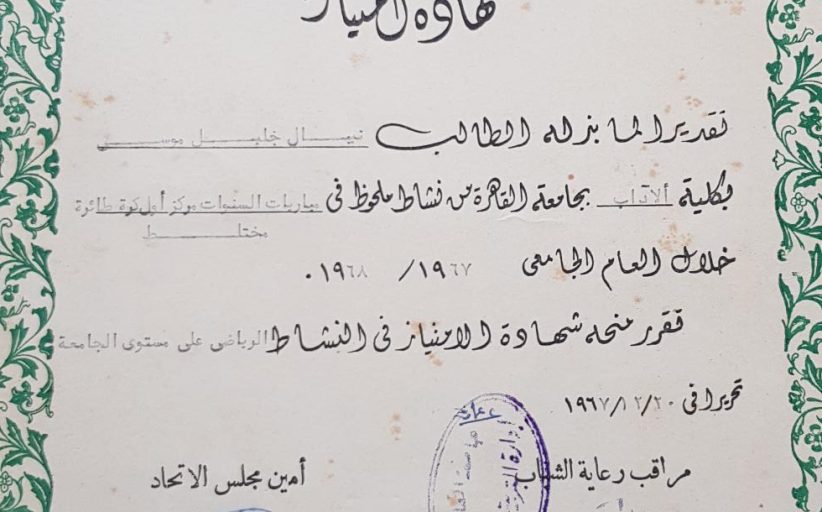 شهادة امتياز
تقديرا لما بذله الطالب نيسال خليل موسى
بكلية الآداب بجامعة القاهرة من نشاط ملحوظ فى مباريات السنوات مركز أول كرة طائرة
مختلط
خلال العام الجامعى ١٩٦٧ / ١٩٦٨ ٠
فقرر منحه شهادة الامتياز فى النشاط الرياضى على مستوى الجامعة
تحريرا فى ٢٠ / ١٢ / ١٩٦٧
مراقب رعاية الشباب
أمين مجلس الاتحاد